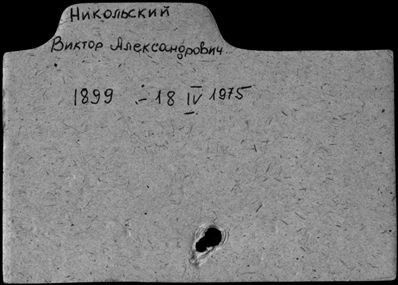 Никольский
Виктор Александрович
1899 - 18 IV 1975